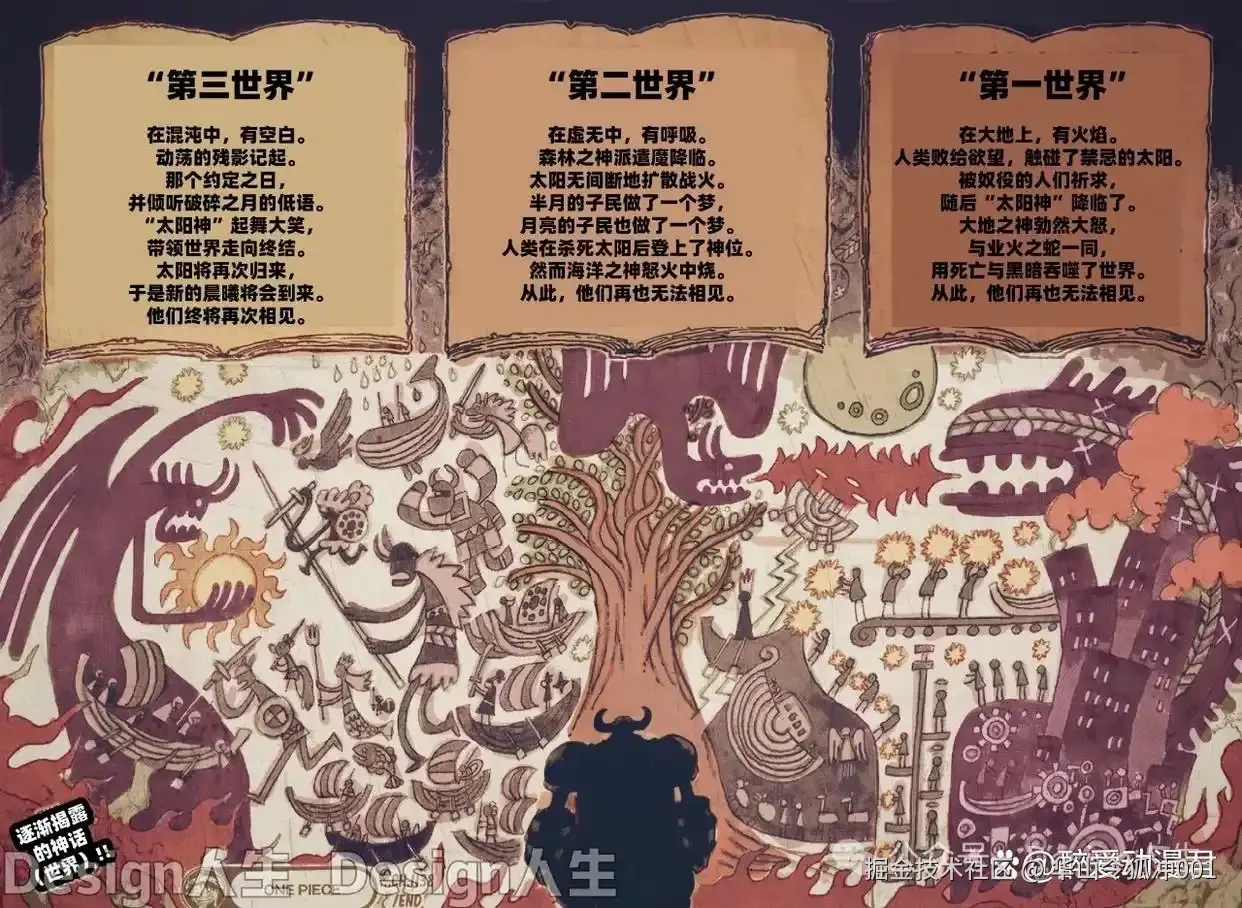 “第三世界”
在混沌中，有空白。
动荡的残影记起。
那个约定之日，
并倾听破碎之月的低语。
“太阳神”起舞大笑，
带领世界走向终结。
太阳将再次归来，
于是新的晨曦将会到来。
他们终将再次相见。
“第二世界”
在虚无中，有呼吸。
森林之神派遣魔降临。
太阳无间断地扩散战火。
半月的子民做了一个梦，
月亮的子民也做了一个梦。
人类在杀死太阳后登上了神位。
然而海洋之神怒火中烧。
从此，他们再也无法相见。
“第一世界”
在大地上，有火焰。
人类败给欲望，触碰了禁忌的太阳。
被奴役的人们祈求，
随后“太阳神”降临了。
大地之神勃然大怒，
与业火之蛇一同，
用死亡与黑暗吞噬了世界。
从此，他们再也无法相见。
逐渐揭露
的神话
世界！！
Design人生 Design人生
ONE PIECE
/END
掘金技术社区